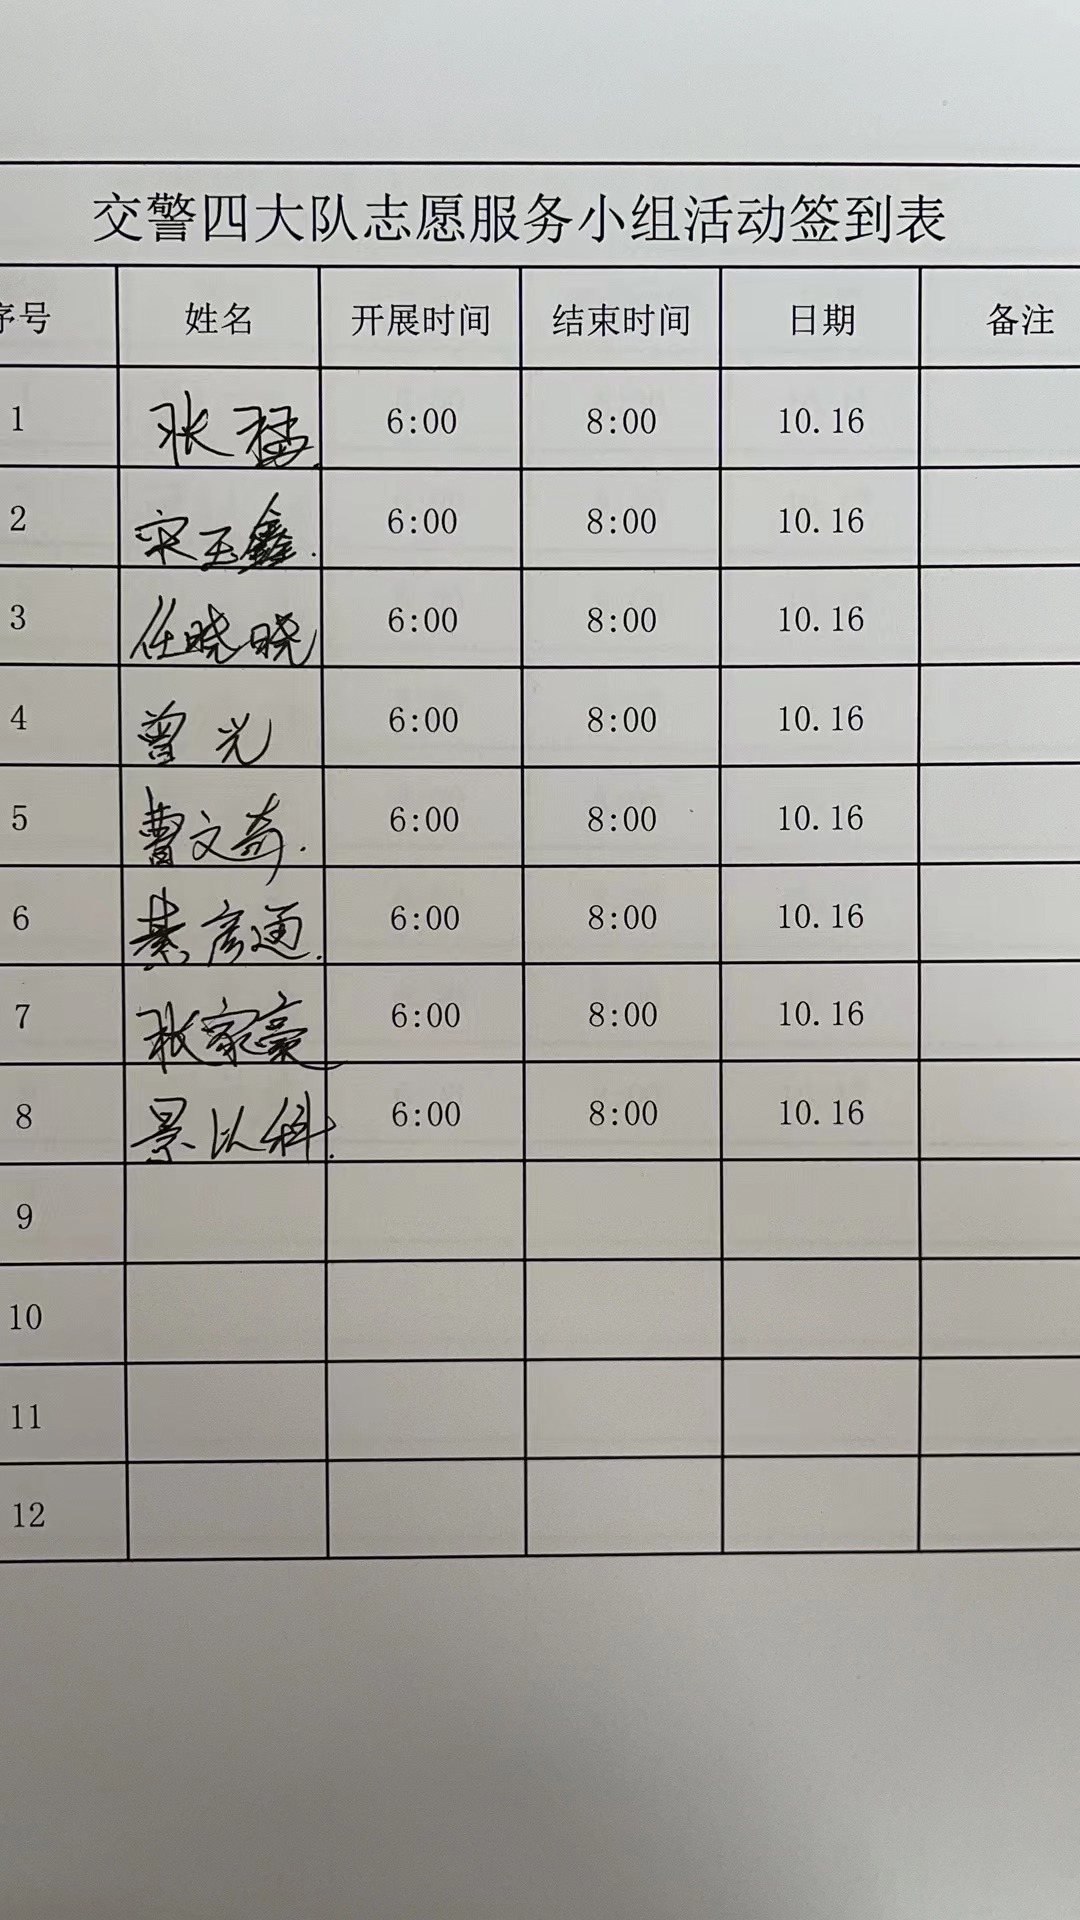 交警四大队志愿服务小组活动签到表
序号 姓名 开展时间 结束时间 日期 备注
1 张猛 6:00 8:00 10.16
2 宋玉鑫. 6:00 8:00 10.16
3 任晓晓 6:00 8:00 10.16
4 曾光 6:00 8:00 10.16
5 曹文奇. 6:00 8:00 10.16
6 綦彦通. 6:00 8:00 10.16
7 张家豪 6:00 8:00 10.16
8 景以科. 6:00 8:00 10.16
9
10
11
12